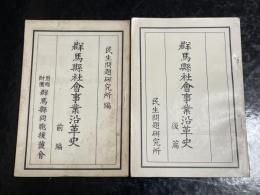 民生問題研究所編
群馬縣社會事業沿革史
前編
財團法人 群馬縣同胞援護會
群馬縣社會事業沿革史
後篇
民生問題研究所